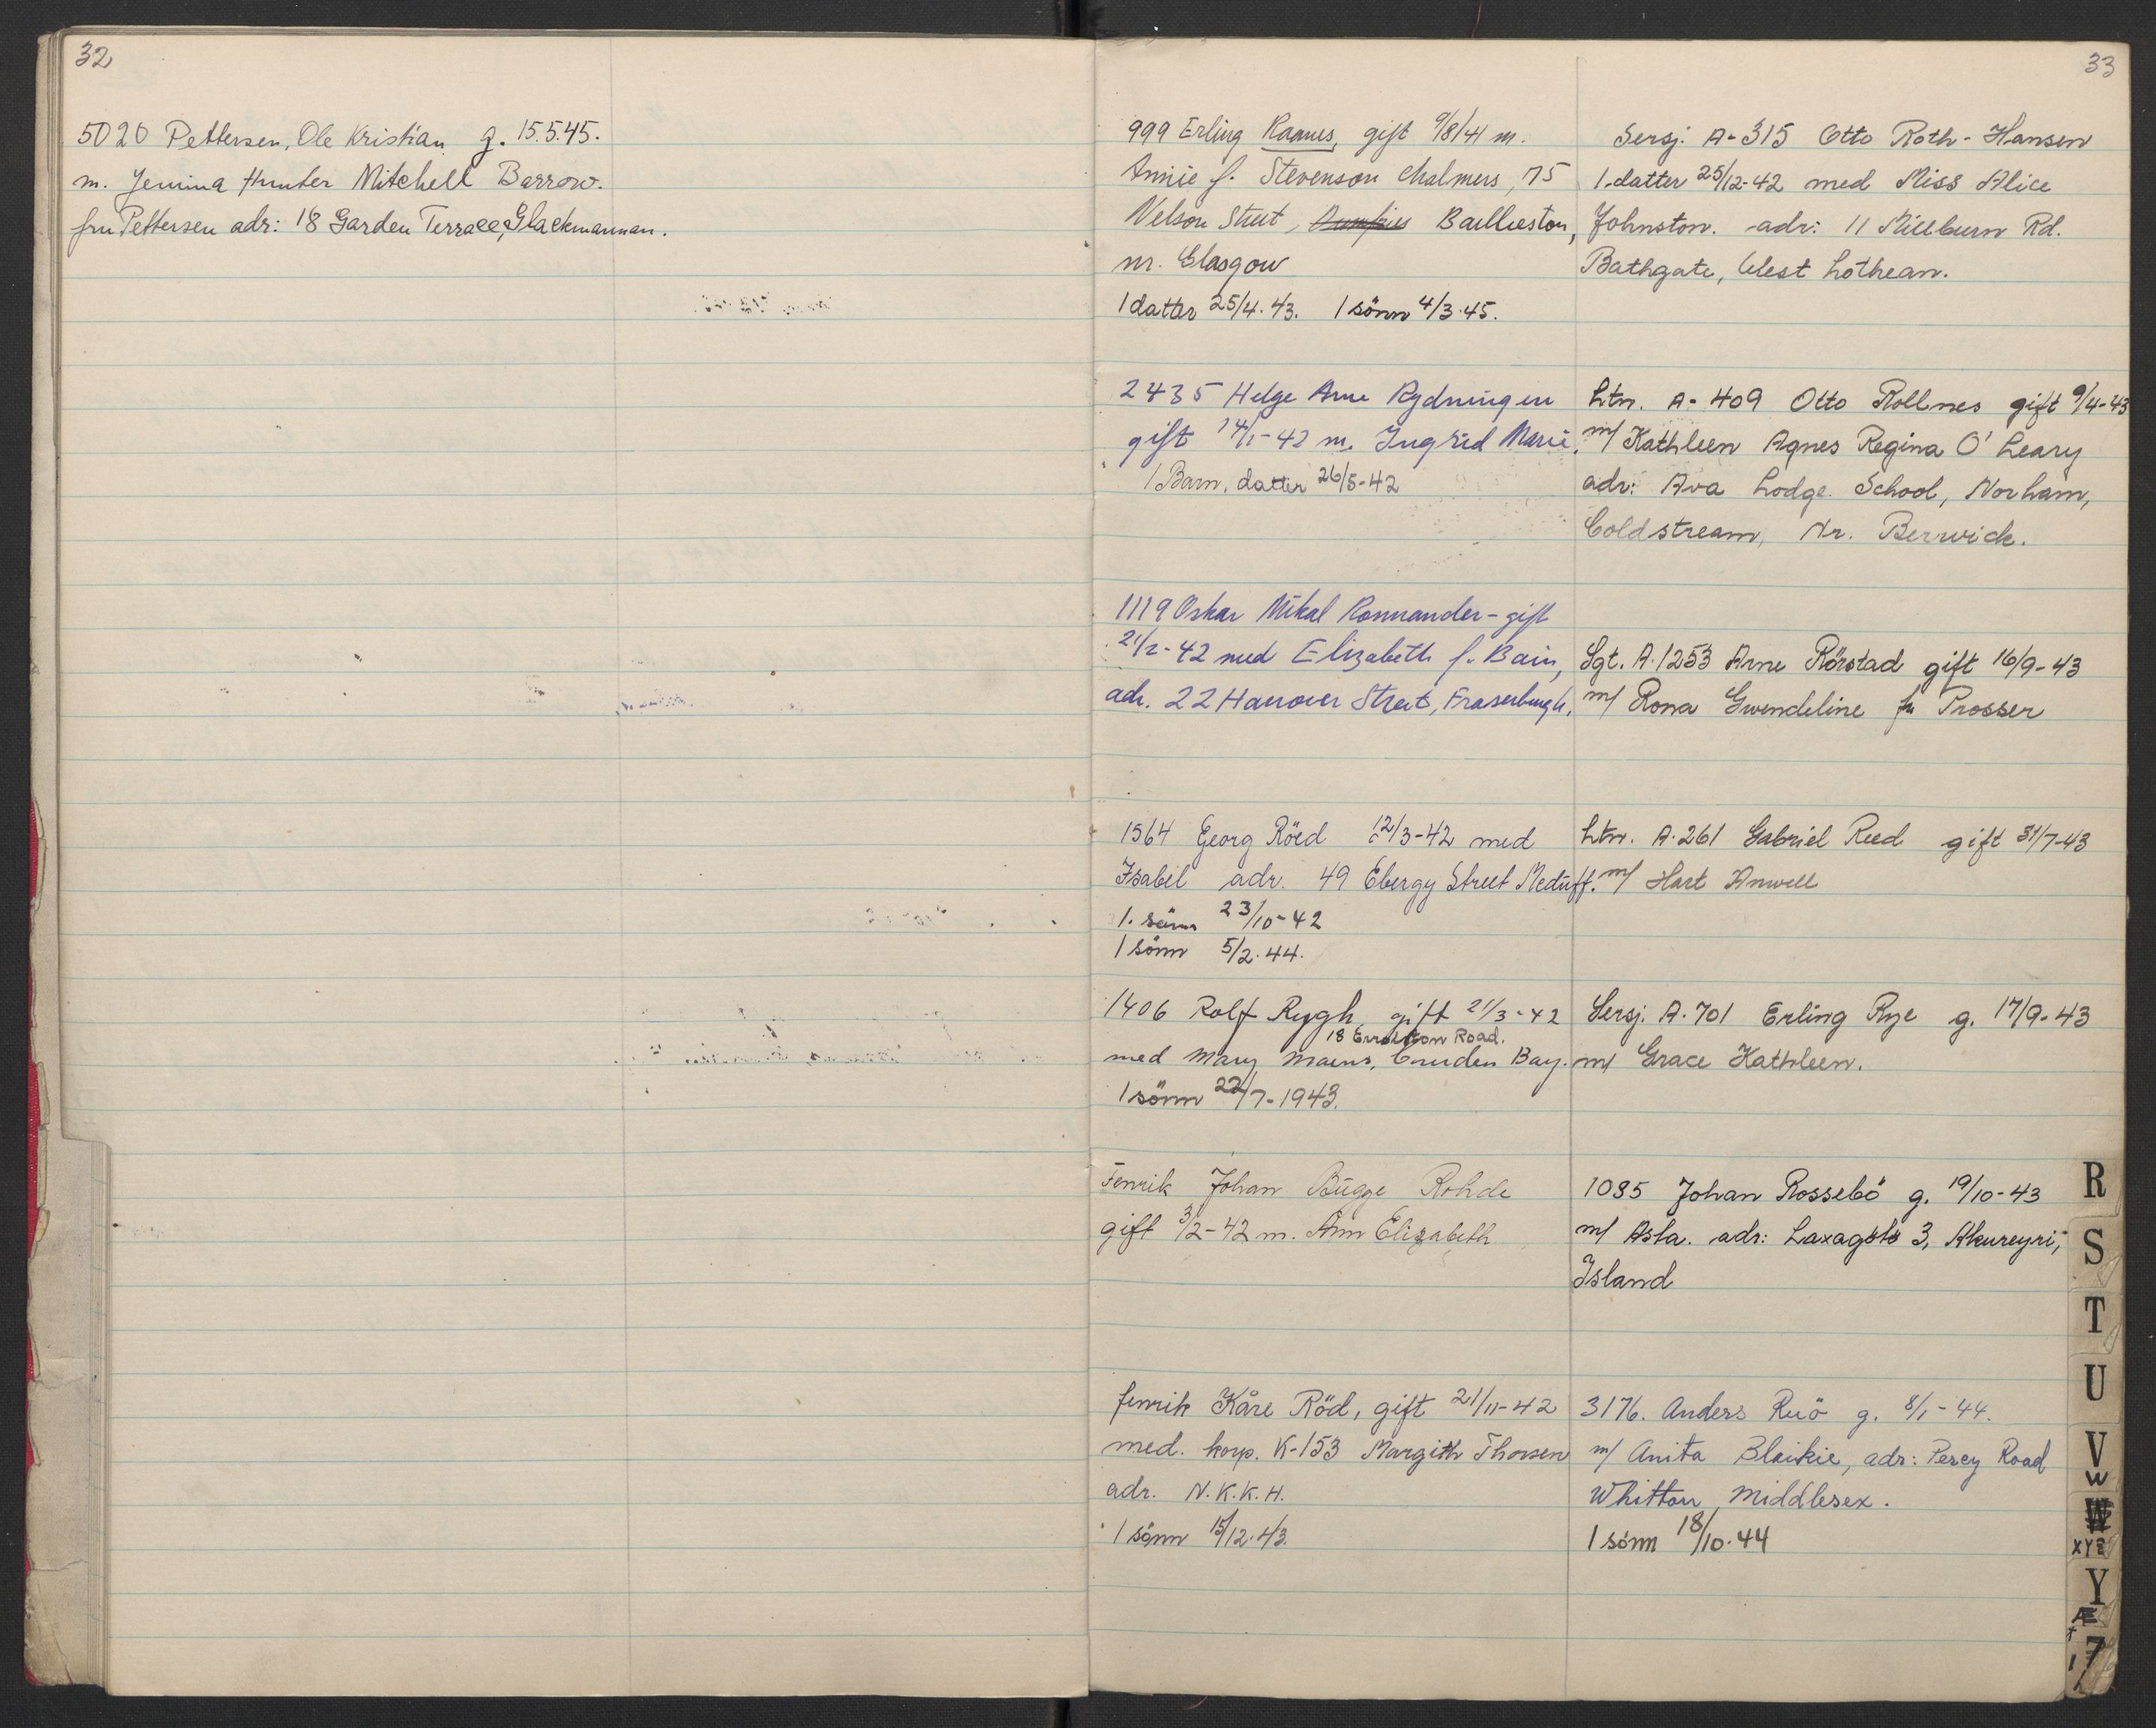 32
5020 Pettersen, Ole Kristian g. 15.5.45.
m. Jemina Hunter Mitchell Barrow.
fru Pettersen adr: 18 Garden Terrace, Glackmannan.
33
999 Erling Raanes, gift 9/8/41 m.
Annie f. Stevenson Chalmers, 75
Nelson Street, Dumfries Baillieston,
nr. Glasgow
1 datter 25/4.43. 1 sönn 4/3.45.
2435 Helge Arne Rydningen
gift 14/1-42 m. Ingrid Marie.
1 Barn, datter 26/5-42
1119 Oskar Mikal Ronnander - gift
21/2-42 med Elizabeth f. Bain,
adr. 22 Hanover Street, Fraserburgh.
1564 Georg Röed 12/3-42 med
Isabel adr. 49 Ebergy Street Mcduff.
1. sönn 23/10-42
1 sönn 5/2.44.
1406 Rolf Rygh gift 21/3-42
18 Errolston Road.
med Mary Mains, Cruden Bay.
1 sönn 22/7-1943.
Fenrik Johan Bügge Rohde
gift 3/2-42 m. Ann Elizabeth
fenrik Kåre Röd, gift 21/11-42
med. korp. K-153 Margith Thorsen
adr. N.K.K.H.
1 sönn 15/12.43.
Sersj. A-315 Otto Roth-Hansen
1.datter 25/12-42 med Miss Alice
Johnston. adr: 11 Millburn Rd.
Bathgate, West Lothean.
Ltn. A-409 Otto Rollnes gift 9/4-43
m/ Kathleen Agnes Regina O'Leary
adr: Ava Lodge School, Norham,
Coldstream, Nr. Berwick.
Sgt. A.1253 Arne Rörstad gift 16/9-43
m/ Rona Gwendeline fr Prosser
Ltn. A.261 Gabriel Reed gift 31/7-43
m/ Hart Anwell
Sersj. A.701 Erling Rye g. 17/9-43
m/ Grace Kathleen.
1085 Johan Rossebö g. 19/10-43
m/ Asta. adr: Laxagöts 3, Akureyri,
Island
3176. Anders Ruö g. 8/1-44.
m/ Anita Blaikie, adr: Percy Road
Whitton, Middlesex.
1 sönn 18/10.44
R
S
T
U
V
W
W
XYZ
Y
Æ
Z